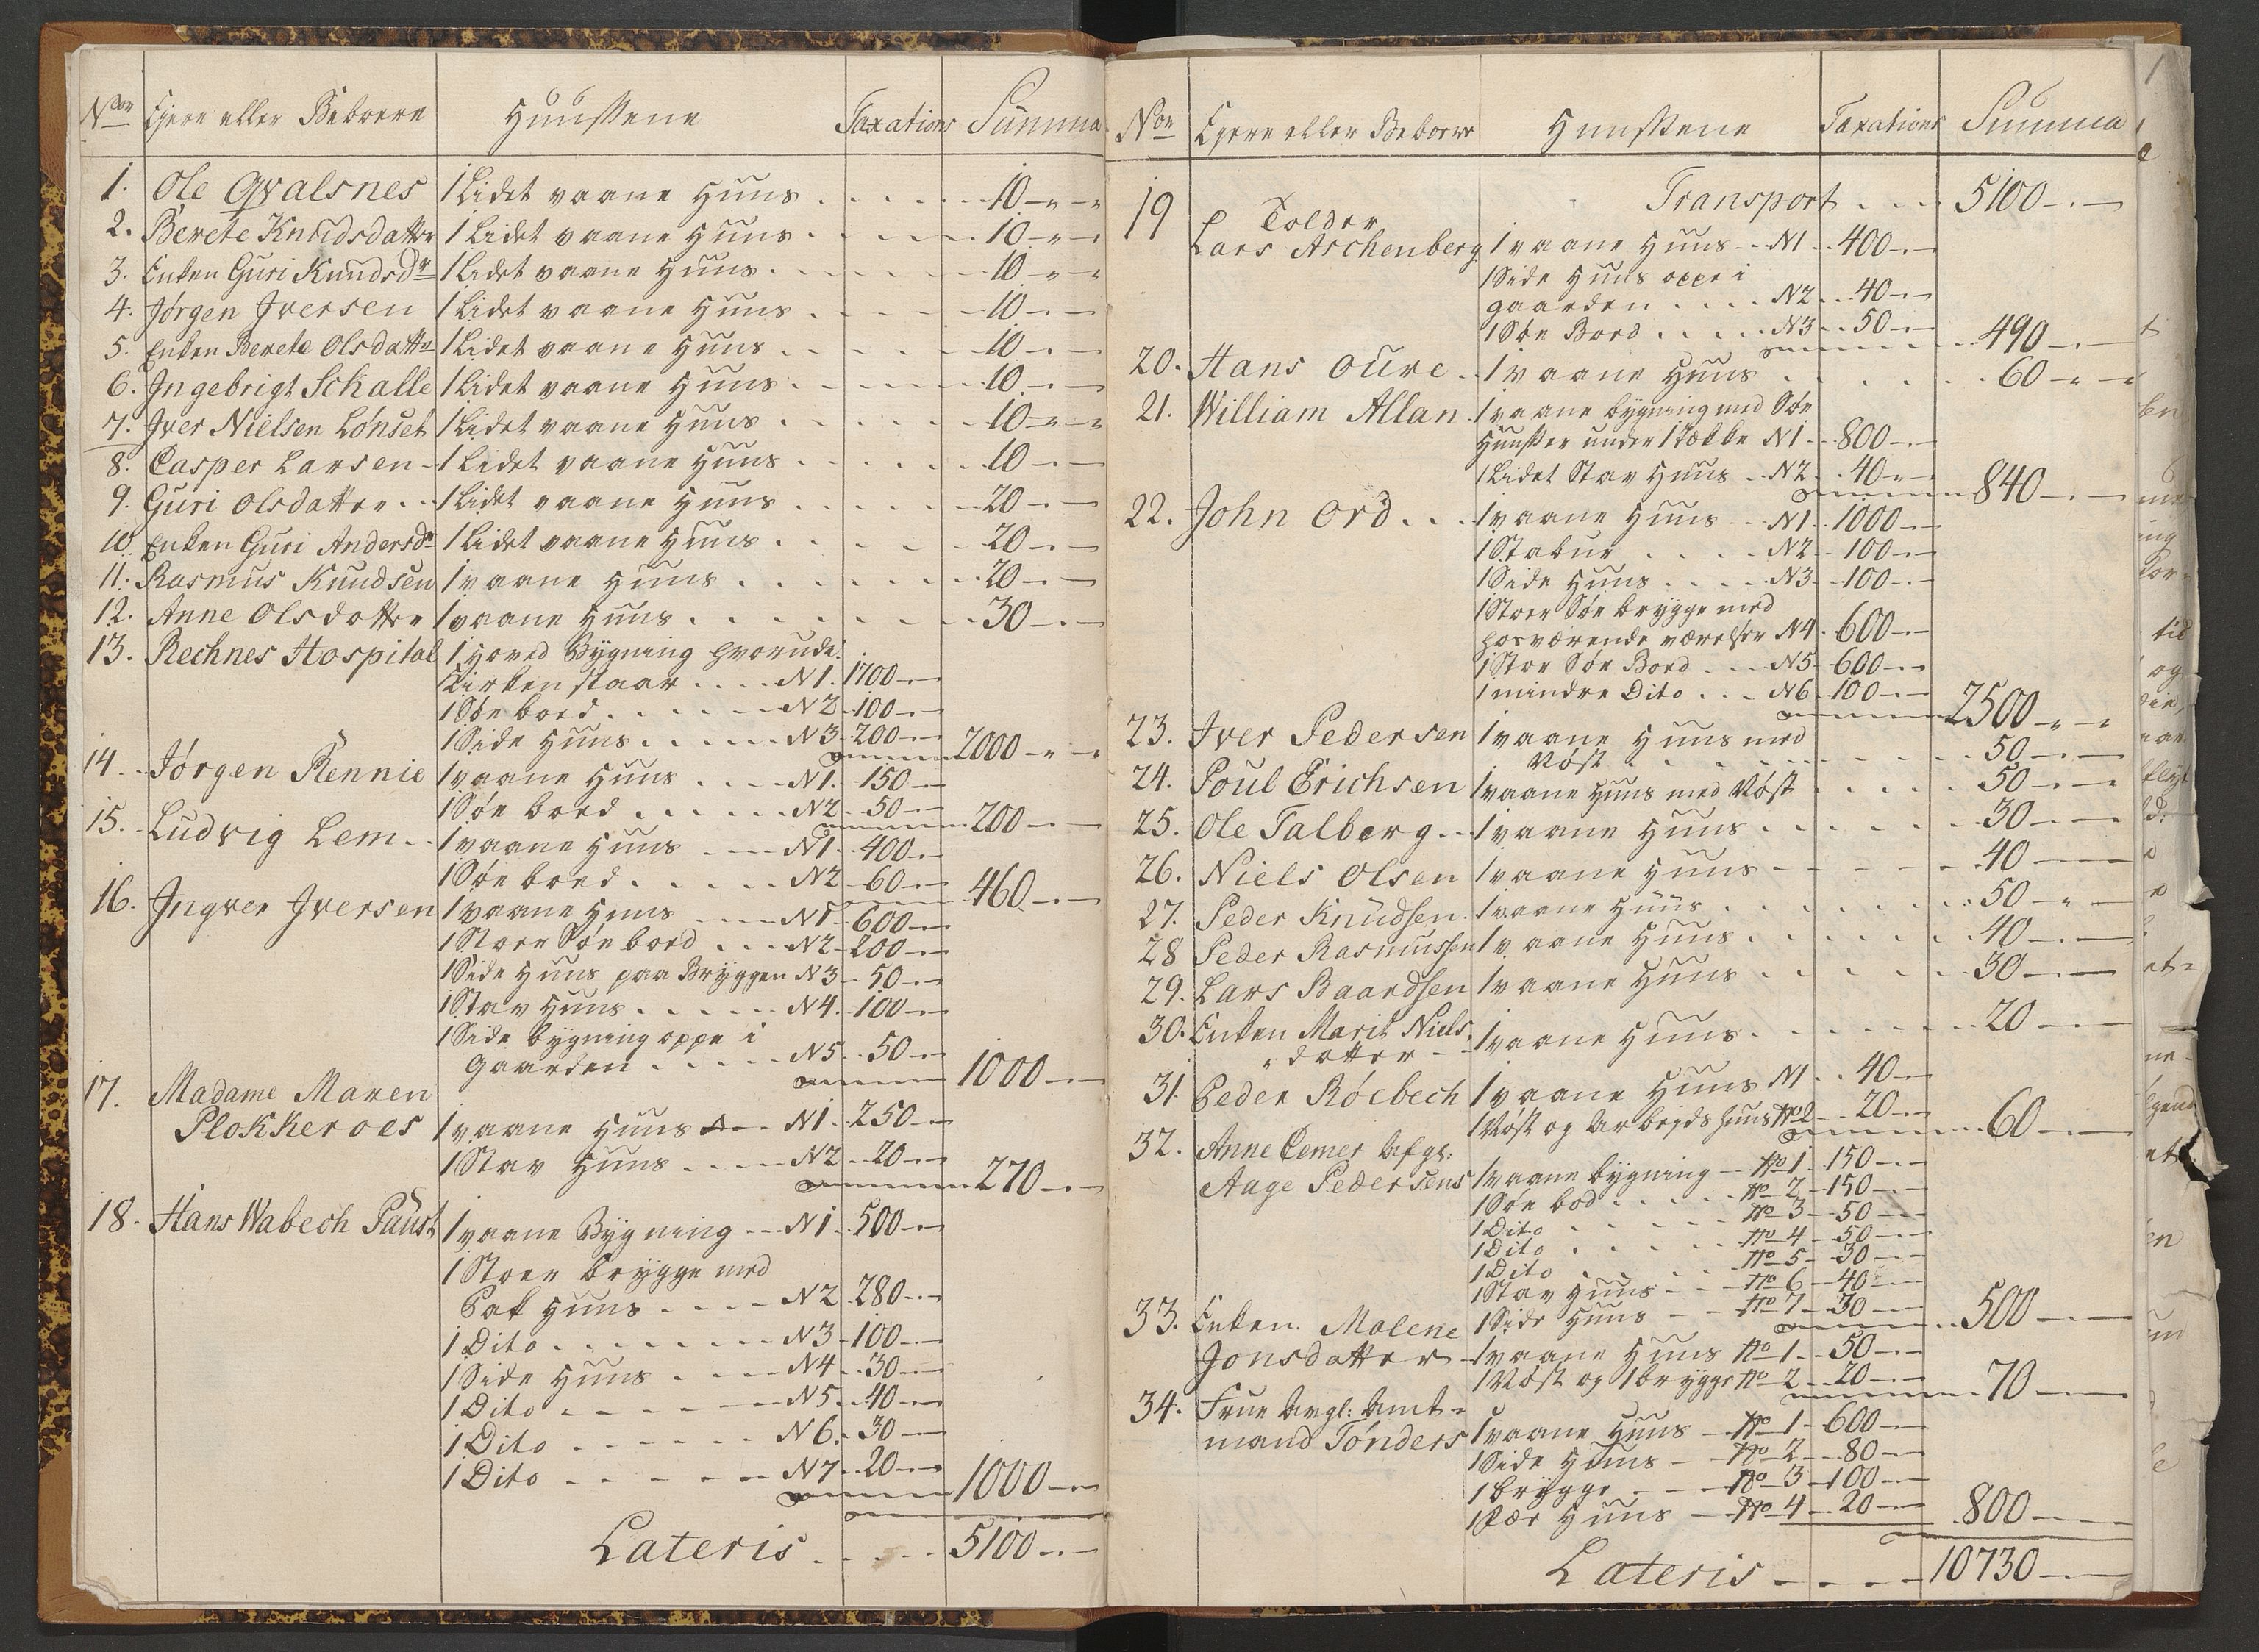 Non Ejere eller Beboere Huussene Taxations Summa
1. Ole Qvalsnes 1 Lidet vaane Huus 10
2. Berete Knudsdatter 1 Lidet vaane Huus 10
3. Enken Guri Knudsdr 1 Lidet vaane Huus 10
4. Jørgen Iversen 1 Lidet vaane Huus 10
5. Enken Berete Olsdatter 1 Lidet vaane Huus 10
6. Ingebrigt Schalle 1 Lidet vaane Huus 10
7. Iver Nielsen Lønset 1 Lidet vaane Huus 10
8. Casper Larsen 1 Lidet vaane Huus 10
9. Guri Olsdatter 1 Lidet vaane Huus 20
10. Enken Guri Andersdr 1 Lidet vaane Huus 20
11. Rasmus Knudsen 1 vaane Huus 20
12. Anne Olsdatter 1 vaane Huus 30
13. Rechnes Hospital 1 Hoved Bygning hvorudi
Kirken staar N1. 1700
1 Søe boed N2 100
1 Side Huus N3 200 2000
14. Jørgen Rennie 1 vaane Huus N1. 150
1 Søe boed N2 50 200
15. Ludvig Lem 1 vaane Huus N1 400
1 Søe boed N2 60 460
16. Ingver Iversen 1 vaane Huus N1. 600
1 Stoer Søe boed N2 200
1 Side Huus paa Bryggen N3 50
1 Stav Huus N4. 100
1 Side bygning oppe i
gaarden N5 50 1000
17. Madame Maren
Plokkeroes 1 vaane Huus N1. 250
1 Stav Huus N2 20 270
18. Hans Wabech Paust 1 vaane Bygning N1. 500
1 Stoer brygge med
Pak Huus N2 280
1 Dito N3 100
1 Side Huus N4 30
1 Dito N5 40
1 Dito N6. 30
1 Dito N7 20 1000
Lateris 5100
Non Ejere eller Beboere Huussene Taxations Summa
Transport 5100
19 Tolder
Lars Aschenberg 1 vaane Huus N1 400
1 Side Huus oppe i
gaarden N2 40
1 Søe Boed N3 50 490
20. Hans Oure 1 vaane Huus 60
21. William Allan 1 vaane bygning med Søe
Huusser under 1 Tække N1 800
1 Lidet Stav Huus N2 40 840
22. John Ord 1 vaane Huus N1 1000
1 Stabur N2 100
1 Side Huus N3 100
1 Stoer Søe brygge med
hosværende værelser N4 600
1 Stor Søe Boed N5 600
1 mindre Dito N6 100 2500
23. Iver Pedersen 1 vaane Huus med
Nøst 50
24. Poul Erichsen 1 vaane Huus med Nøst 50
25. Ole Talberg 1 vaane Huus 30
26. Niels Olsen 1 vaane Huus 40
27. Peder Knudsen 1 vaane Huus 50
28 Peder Rasmussen 1 vaane Huus 40
29. Lars Baardsen 1 vaane Huus 30
30. Enken Marit Niels
datter 1 vaane Huus 20
31. Peder Røebech 1 vaane Huus N1 40
1 Nøst og Arbejds huus No 2 20 60
32. Anne Cemer Afgl:
Aage Pedersens 1 vaane bygning No 1 150
1 Søe bod No 2 150
1 Dito No 3 50
1 Dito No 4 50
1 Dito No 5 30
1 Stav Huus No 6 40
1 Side Huus No 7 30 500
33. Enken Malene
Jonsdatter 1 vaane Huus No 1 50
1 Nøst og 1 brygge No 2 20 70
34. Frue Avgl: Amt-
mand Tønders 1 vaane Huus No 1 600
1 Side Huus No 2 80
1 brygge No 3 100
1 Huus No 4 20 800
Lateris 10730